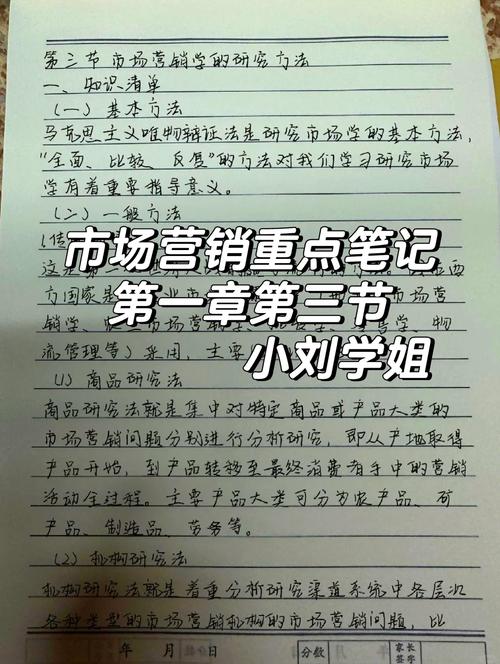 第三节 市场营销学的研究方法
一、知识清单
（一）基本方法
马克思主义唯物辩证法是研究市场学的基本方法，
“全面、比较、反复”的方法对我们学习研究市场
学有着重要指导意义。
（二）一般方法
市场营销重点笔记
第一章第三节
小刘学姐
流管理等）采用，主要
（1）商品研究法
商品研究法就是集中对特定商品或产品大类的
市场营销问题分别进行分析研究，即从产地取得
产品开始，到产品转移至最终消费者手中的营销
活动全过程。主要产品大类可分为农产品、矿
产品、制造品、劳务等。
（2）机构研究法
机构研究法就是着重分析研究渠道系统中各层次
各种类型的市场营销机构的市场营销问题，比
年 月 日
分数
家长
签字